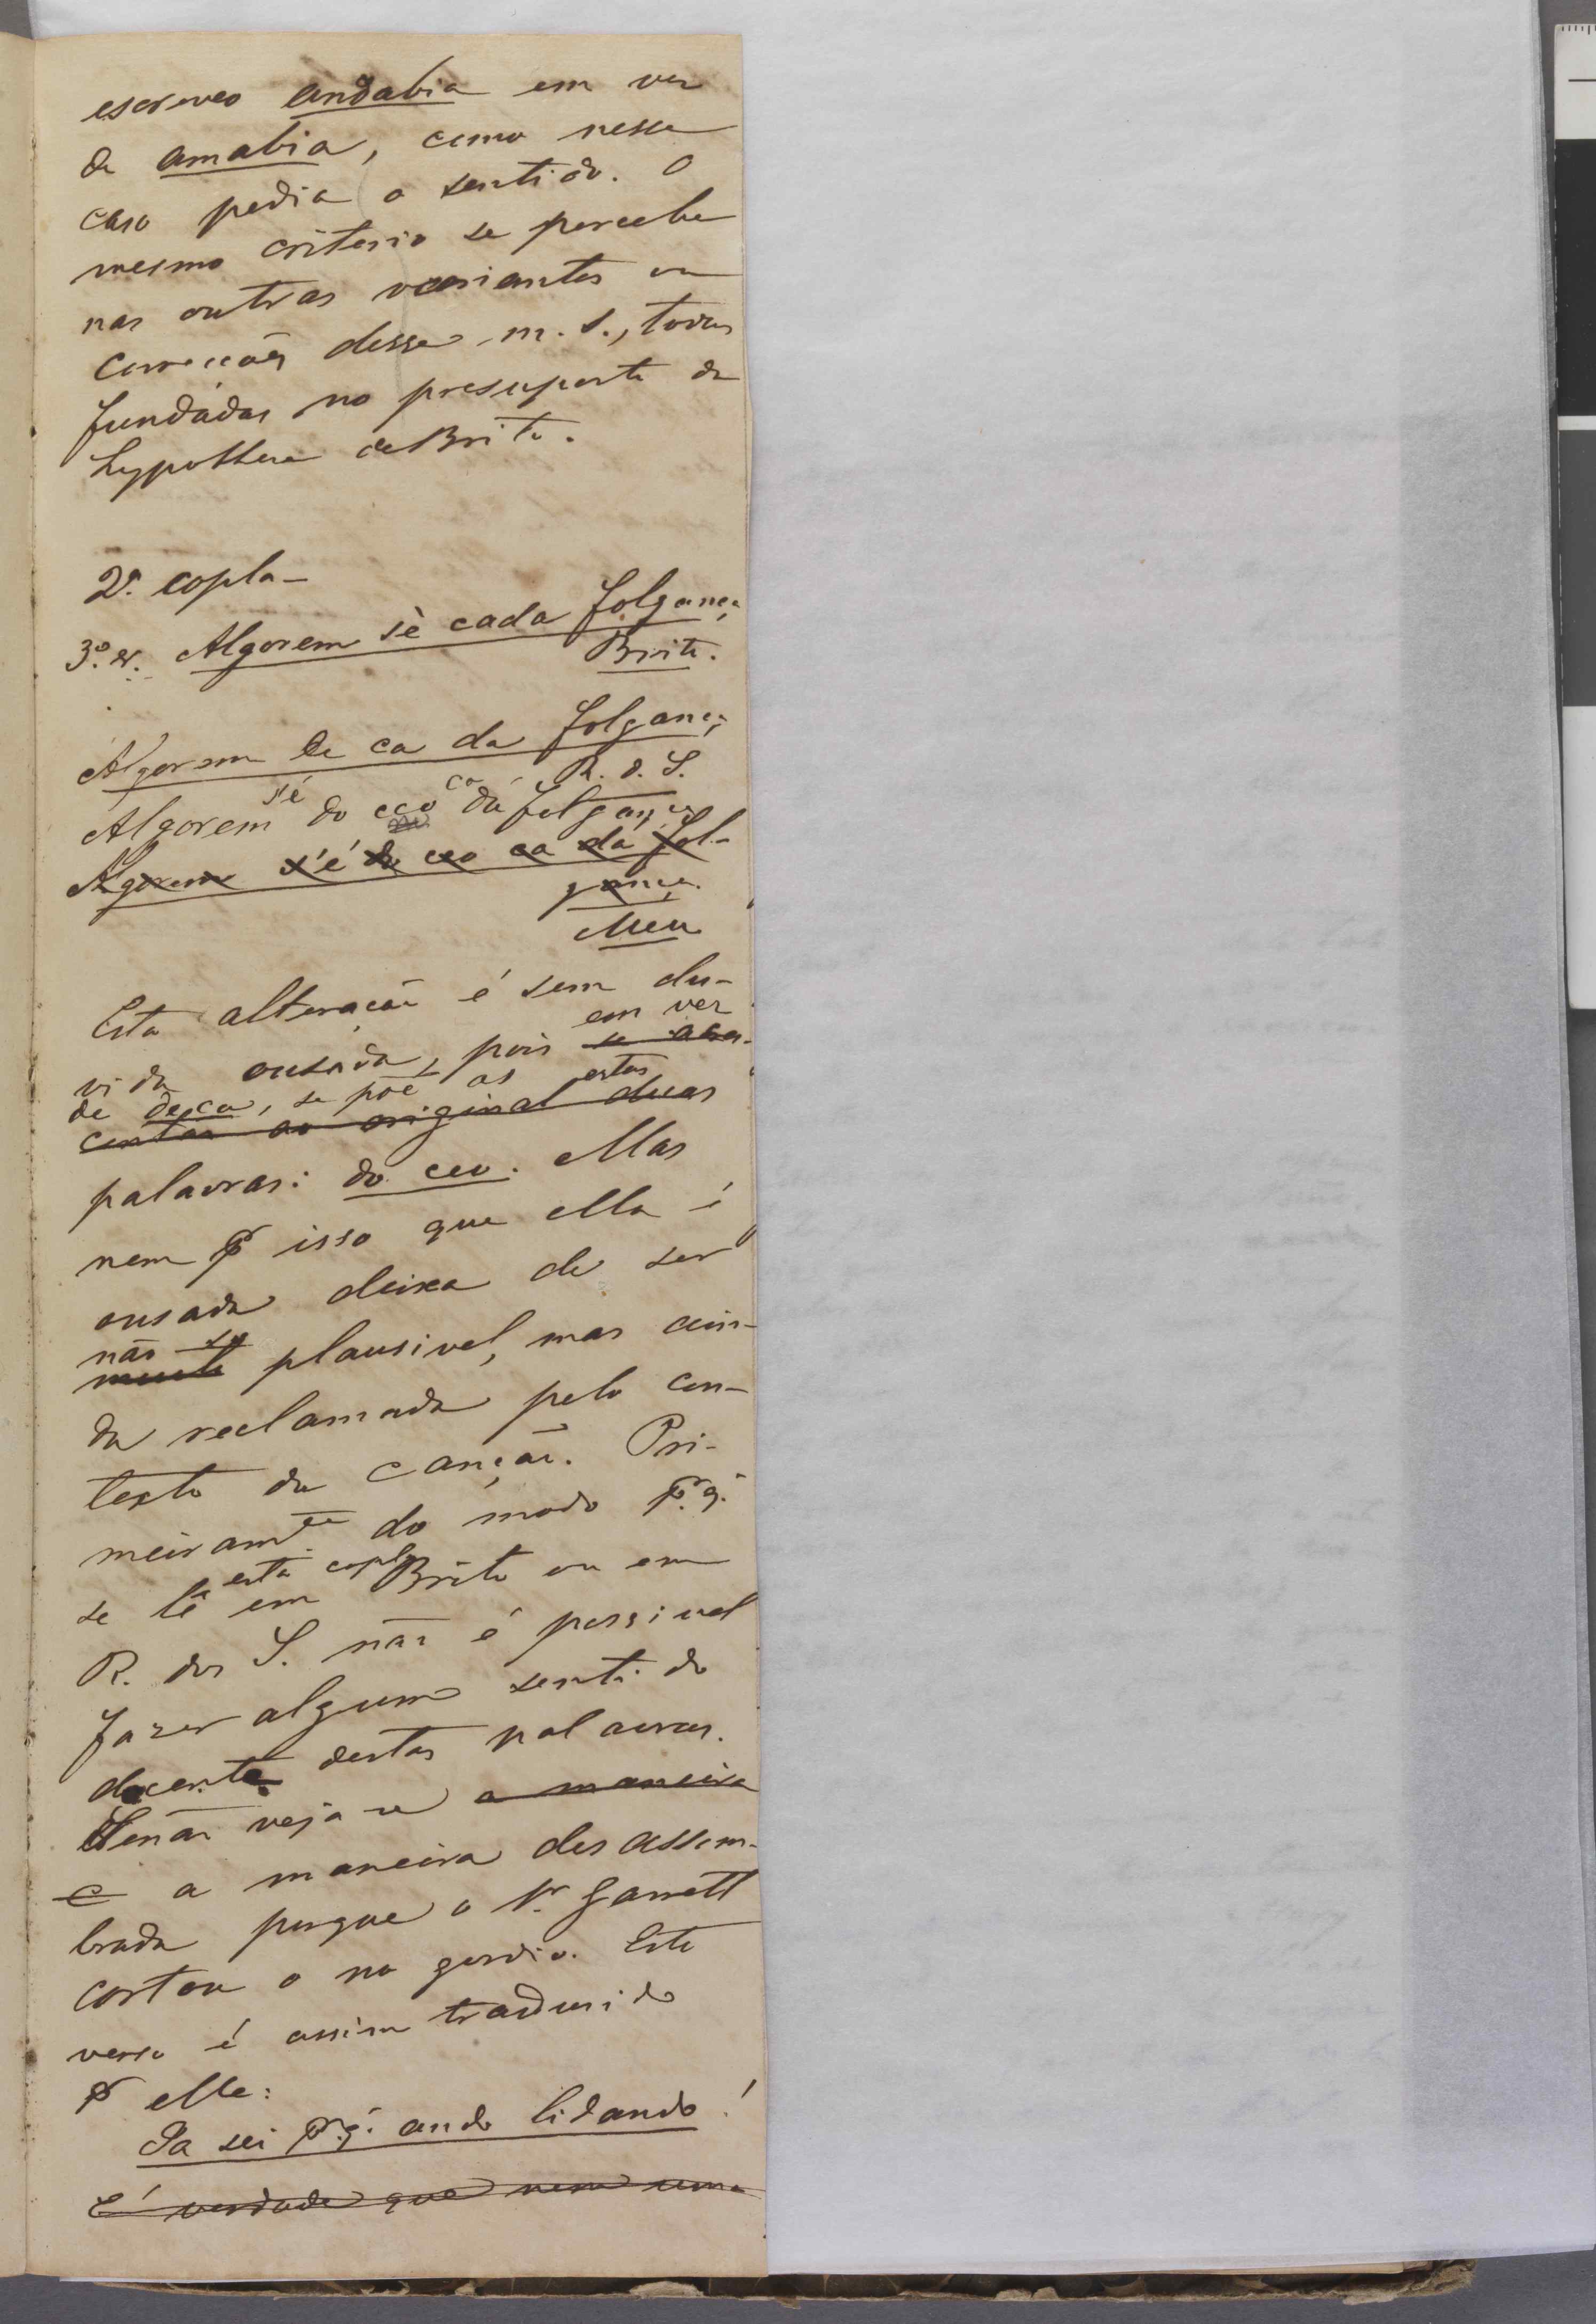 escreveo andabia em vez
de amabia, como nesse
caso pedia o sentido. O
mesmo criterio se percebe
nas outras variantes ou
correcções desse m. s., todas
fundadas no presuposto da
hypothese de Brito.
2ª. copla-
3º. v. Algorem sè cada folgança
Brito.
Algorem de ca da folgança
R. d. S.
Algorem s'é do ceo ca dá folgança
Algorem s'é do ceo ca dá fol-
gança.
Meu
Esta alteração é sem du-
vida ousada, pois se acres-
em vez
de deca, se põe as estas
centão ao original duas
palavras: do ceo. Mas
nem pr isso que ella é
ousada deixa de ser
não so
muito plausivel, mas ain-
da reclamada pelo con-
texto da canção. Pri-
meiramte. do modo pr. q.
se lê esta copla em Brito ou em
R. dos S. não é possivel
fazer algum sentido
decente destas palavras.
Senão veja-se a maneira
e a maneira desassom-
brada porque o Vr. Garrett
cortou o no gordio. Este
verso é assim tradusido
pr elle:
Ja sei pr. q. ando lidando!
É verdade que nem uma